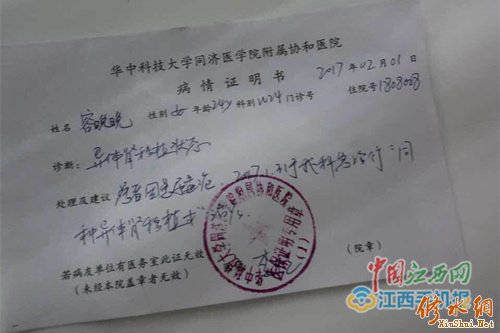 华中科技大学同济医学院附属协和医院
病情证明书
2017年02月01日
姓名 容晚晚 性别 女 年龄 24岁 科别 门诊号 住院号 1808008
诊断: 异体肾移植状态
处理及建议 患者因 2017.1.31于我科 治疗"同
种异体肾移植术
若病友单位有医务室此证无效
(未经本院盖章者无效)
(院章)
医疗证明专用章
(1)
中国江西网
江西手机报
修水网
XiuShui.Net